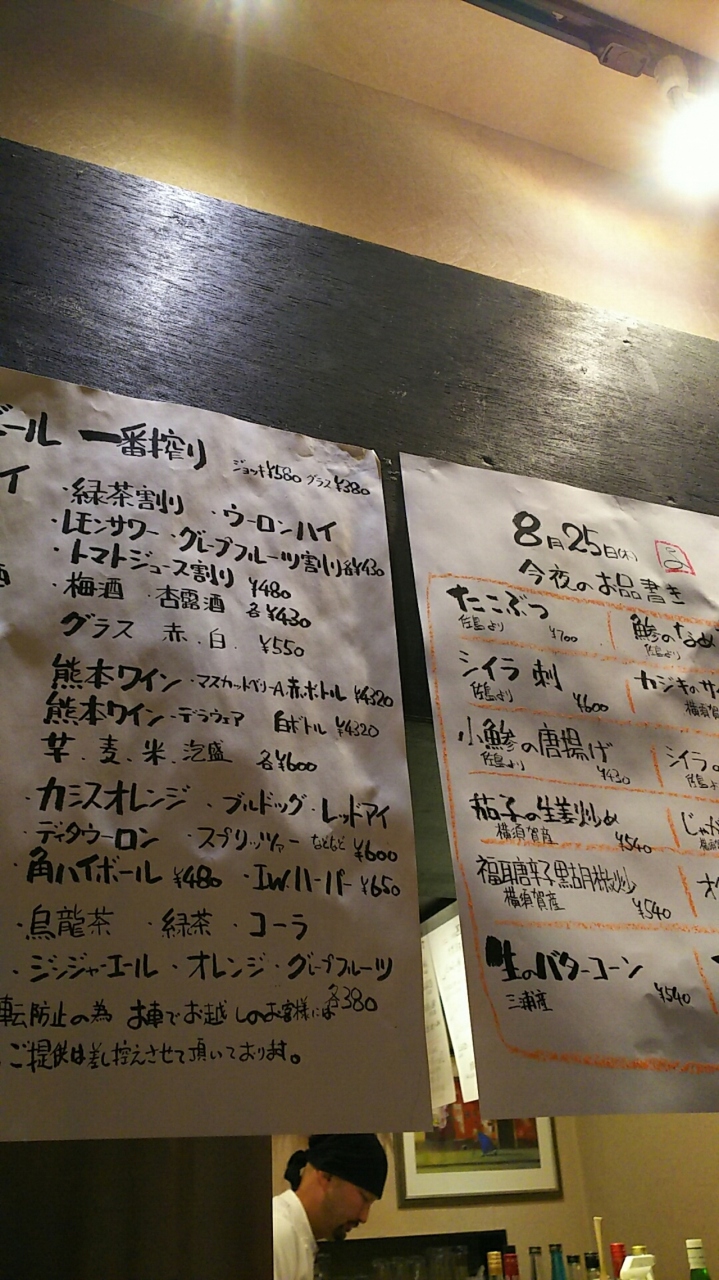 ビール 一番搾り ジョッキ¥580 グラス¥380
イ
・緑茶割り ・ウーロンハイ
・レモンサワー ・グレープフルーツ割り各¥430
・トマトジュース割り ¥480
・梅酒 ・杏露酒 各¥430
グラス 赤.白. ¥550
熊本ワイン ・マスカットベリーA赤ボトル ¥4320
熊本ワイン・デラウェア 白ボトル ¥4320
芋.麦.米.泡盛 各¥600
・カシスオレンジ ・ブルドッグ・レッドアイ
・ディタウーロン ・スプリッツァー などなど ¥600
・角ハイボール ¥480 ・I.W.ハーパー ¥650
・烏龍茶 ・緑茶 ・コーラ
・ジンジャーエール ・オレンジ ・グレープフルーツ
各380
転防止の為 お車でお越しのお客様には
ご提供は差し控えさせて頂いております。
8月25日(木)
今夜のお品書き
たこぶつ
佐島より ¥700
シイラ刺
佐島より ¥600
小鯵の唐揚げ
佐島より ¥430
茄子の生姜炒め
横須賀産 ¥540
福耳唐辛子黒胡椒炒
横須賀産 ¥540
生のバターコーン
三浦産 ¥540
鯵のなめ
佐島より
カジキのサ
横須賀
シイラの
佐島よ
じゃが
オ